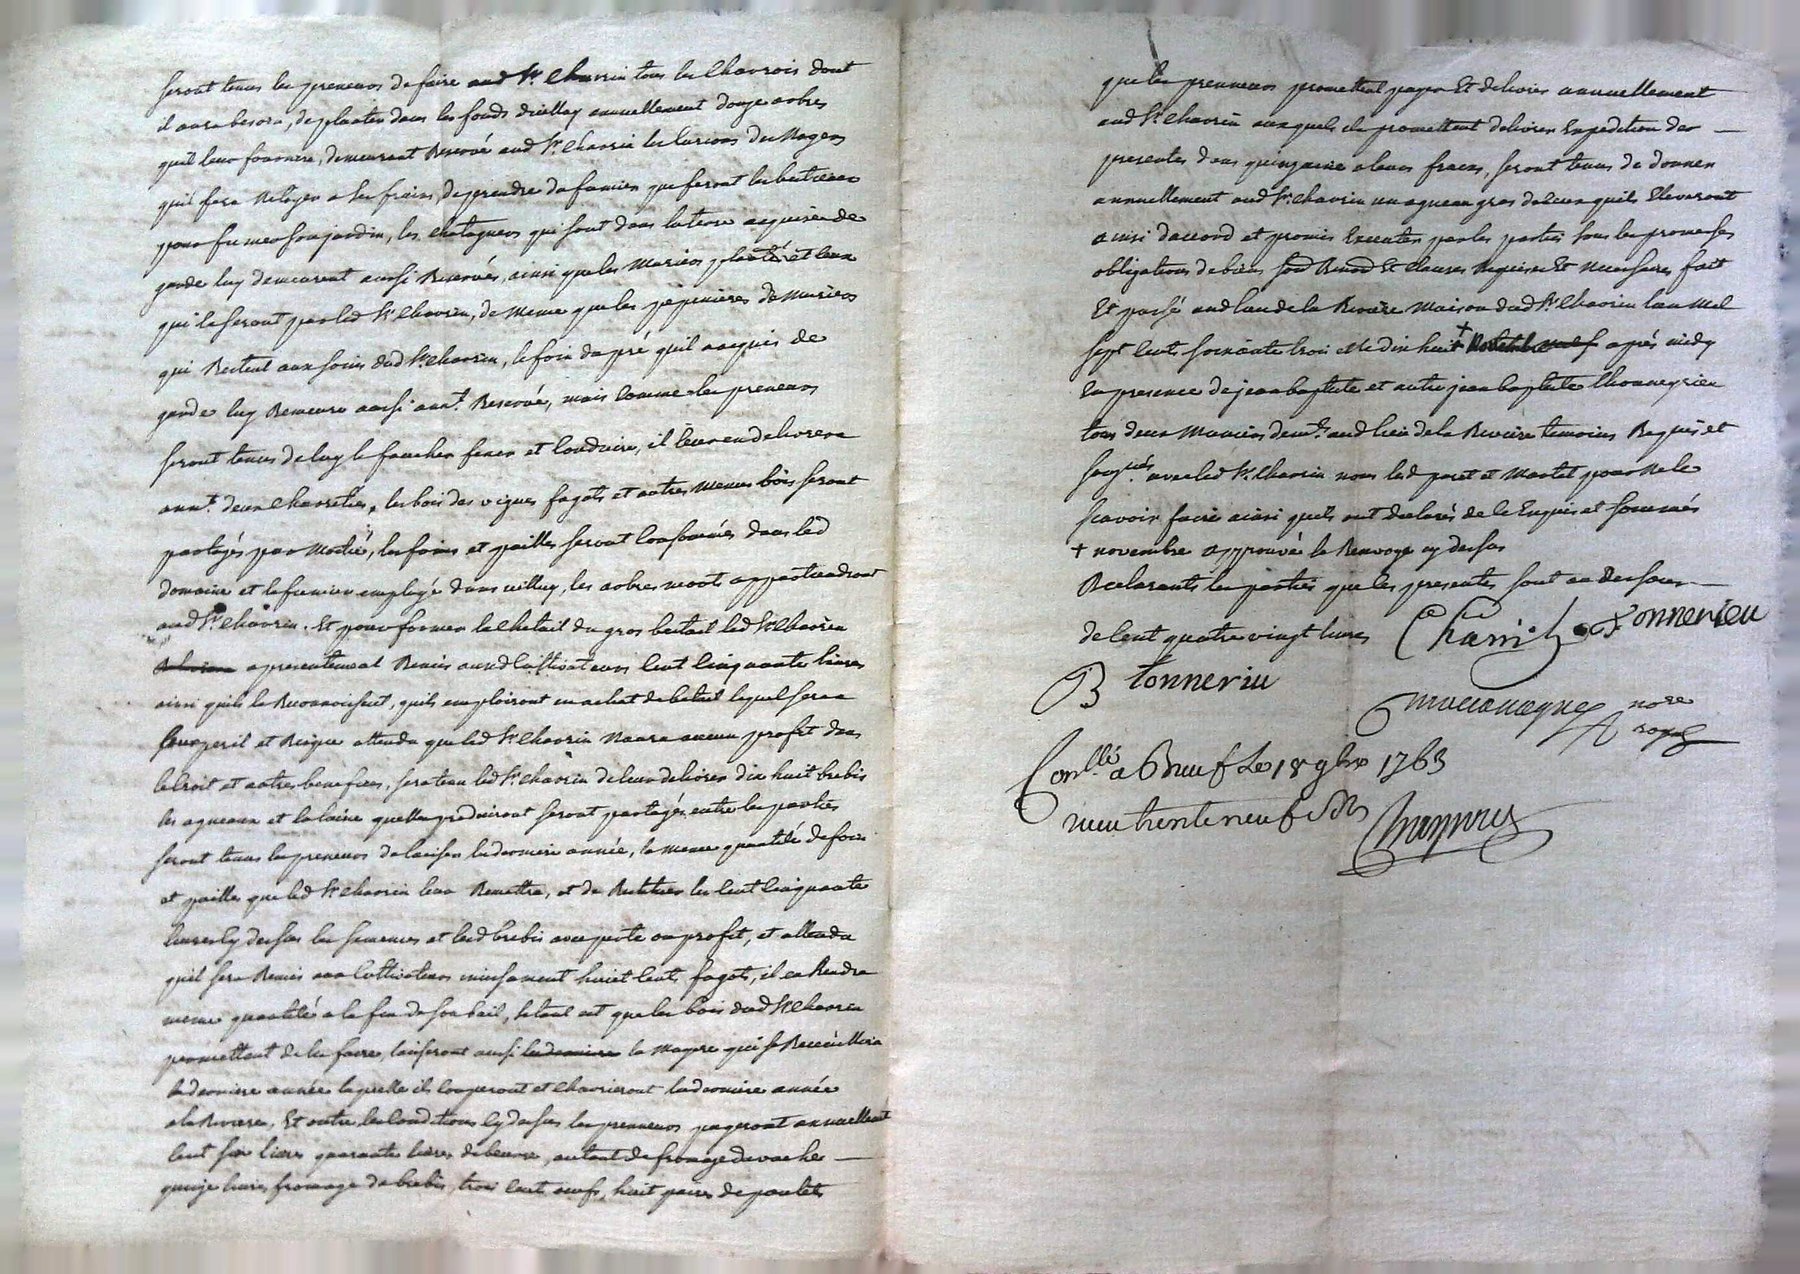 seront tenus les preneurs de faire aud Sr. Chavrin tous les Charrois dont
il aura besoin, de planter dans les fonds d'icelluy annuellement douze arbres
quil leur fournira, demeurant Reservé aud Sr. Chavrin les
quil fera a ses fraix, de prendre du fumier que feront les bestiaux
pour fumer son jardin, les chataignes qui sont dans la terre acquise de
luy demeurent aussi Reservés, ainsi que les Muriers plantés et ceux
qui le seront par led Sr. Chavrin, de meme que les pepinieres de Muriers
qui Restent aux soins dud Sr. Chavrin, le foin du pré quil a acquis de
luy demeure aussi Reservé, mais comme les preneurs
seront tenus de luy le faucher fener et conduire, il leur en delivrera
annt. deux Charretées, les bois des vignes fagots et autres menus bois seront
partagés par Moitié, les foins et pailles seront consommés dans led
domaine et le fumier employé dans icelluy, les arbres morts appartiendront
aud Sr. Chavrin. Et pour former le chetail du gros bestail led Sr. Chavrin
a presentement Remis auxd Cultivateurs cent cinquante livres
ainsi quils le Reconnoissent, quils employeront en achat de betail lequel sera a
leur peril et Risque attendu que led Sr. Chavrin Naura aucun profit dans
le croit et autres benefices, sera tenu led Sr. Chavrin de leur delivrer dix huit brebis
les agneaux et la laine quelles produiront seront partagés entre les parties
seront tenus les preneurs de laisser la derniere année, la meme quantité de foin
et pailles que led Sr. Chavrin leur Remettra, et de Restituer les cent cinquante
livres cy dessus les semences et lesd brebis avec perte ou profit, et attendu
quil sera Remis aux Cultivateurs incessament huict cents fagots, il en Rendra
meme quantité a la fin de son bail, et que les bois dud Sr. Chavrin
permettent de les faire, laisseront aussi la qui se Receuillira
la derniere année laquelle ils couperont et charrieront la derniere année
a la Riviere, Et outre les Conditions cy dessus les preneurs payeront annuellement
cent six livres quarante livres de beurre, autant de fromage de vache
quinze livres fromage de brebis, trois cent oeufs, huit paires de poulets
que les preneurs promettent payer Et delivrer annuellement
aud Sr. Chavrin auxquels ils promettent delivrer Expedition des
presentes dans quinzaine a leurs fraix, seront tenus de donner
annuellement aud Sr. Chavrin un agneau gras de ceux quils Eleveront
ainsi d'accord et promis Executer par les parties sous les promesses
obligations de biens Et Clauses Requises Et Necessaires fait
Et passé aud lieu de la Riviere Maison dud Sr. Chavrin lan Mil
sept cents soixante trois Et le dix huit + après midy
en presence de jean baptiste et autre jean baptiste thonnerieu
tous deux demts. aud lieu de la Riviere temoins Requis et
soussignés avec led Sr. Chavrin nous led et pour Ne le
scavoir faire ainsi quils ont declarés de ce Enquis et sommés
+ novembre approuvé le Renvoye cy dessus
Declarants les parties que les presentes sont au dessous
de Cent quatre vingt livres Chavrin tonnerieu
B tonneriu
nore
royal
Conllé a Bneuf Le 18 9bre 1763
Reçu trente neuf sols